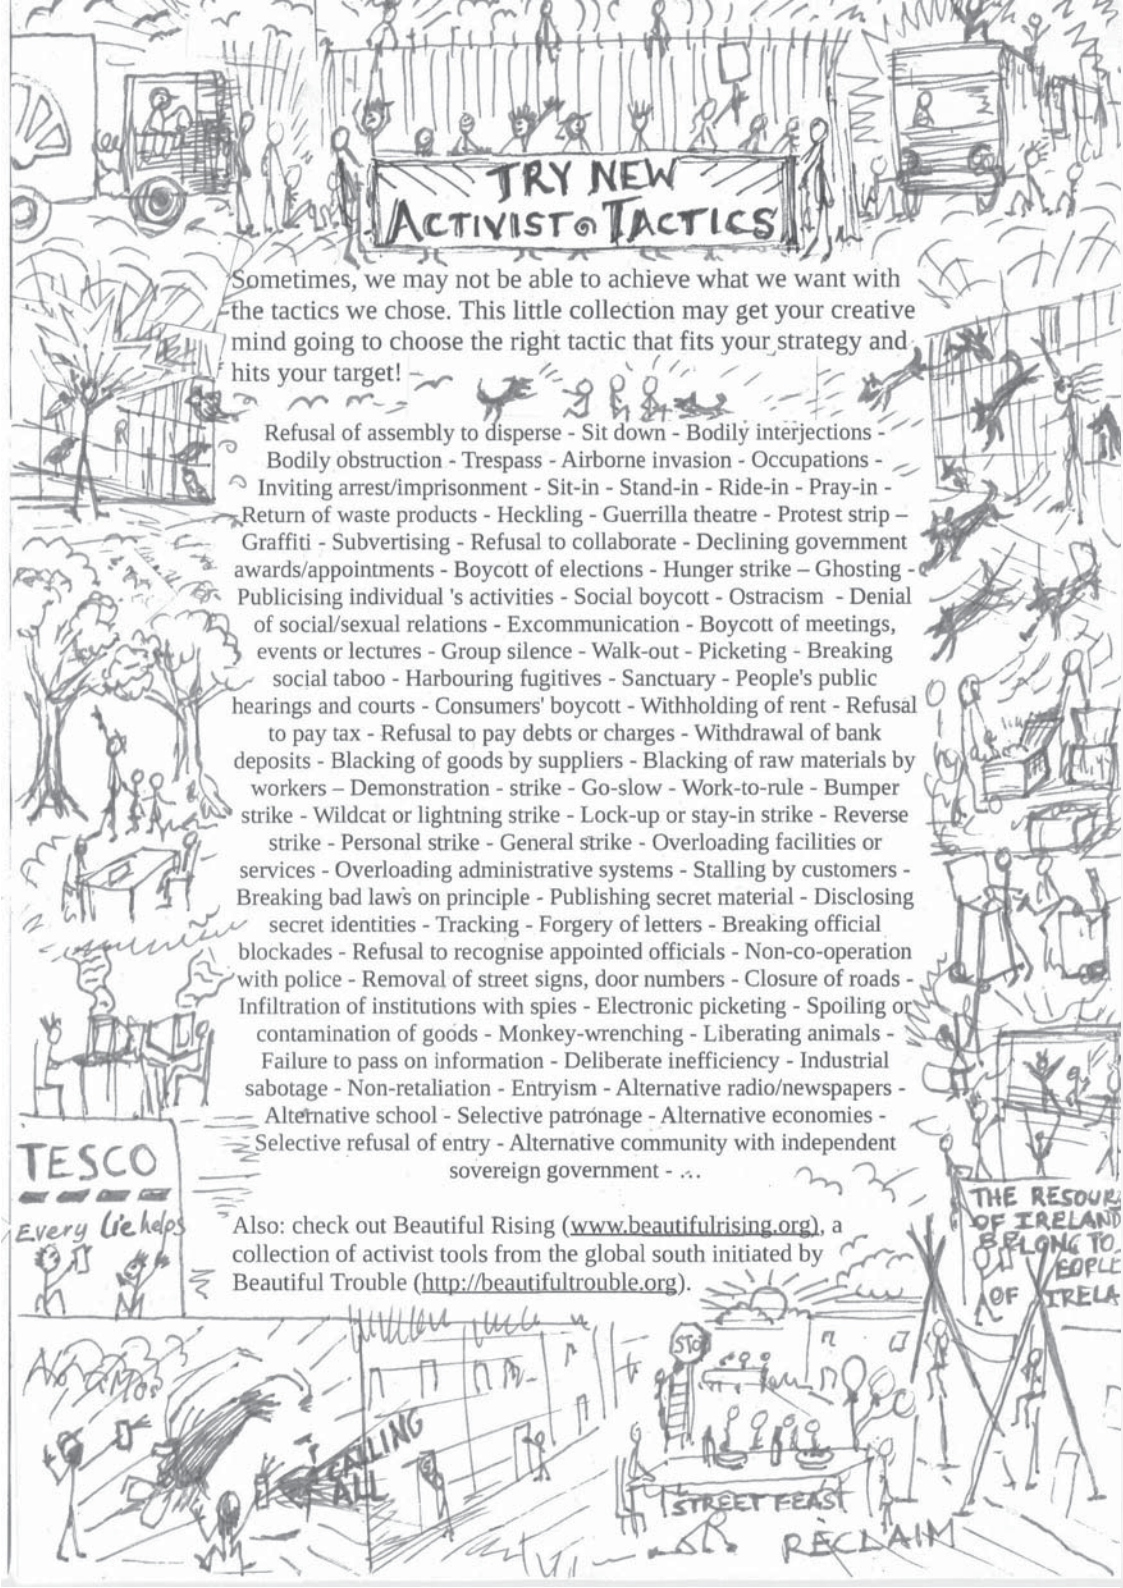 TRY NEW
ACTIVIST TACTICS
Sometimes, we may not be able to achieve what we want with
the tactics we chose. This little collection may get your creative
mind going to choose the right tactic that fits your strategy and
hits your target!
Refusal of assembly to disperse - Sit down - Bodily interjections -
Bodily obstruction - Trespass - Airborne invasion - Occupations -
Inviting arrest/imprisonment - Sit-in - Stand-in - Ride-in - Pray-in -
Return of waste products - Heckling - Guerrilla theatre - Protest strip –
Graffiti - Subvertising - Refusal to collaborate - Declining government
awards/appointments - Boycott of elections - Hunger strike – Ghosting -
Publicising individual 's activities - Social boycott - Ostracism - Denial
of social/sexual relations - Excommunication - Boycott of meetings,
events or lectures - Group silence - Walk-out - Picketing - Breaking
social taboo - Harbouring fugitives - Sanctuary - People's public
hearings and courts - Consumers' boycott - Withholding of rent - Refusal
to pay tax - Refusal to pay debts or charges - Withdrawal of bank
deposits - Blacking of goods by suppliers - Blacking of raw materials by
workers – Demonstration - strike - Go-slow - Work-to-rule - Bumper
strike - Wildcat or lightning strike - Lock-up or stay-in strike - Reverse
strike - Personal strike - General strike - Overloading facilities or
services - Overloading administrative systems - Stalling by customers -
Breaking bad laws on principle - Publishing secret material - Disclosing
secret identities - Tracking - Forgery of letters - Breaking official
blockades - Refusal to recognise appointed officials - Non-co-operation
with police - Removal of street signs, door numbers - Closure of roads -
Infiltration of institutions with spies - Electronic picketing - Spoiling or
contamination of goods - Monkey-wrenching - Liberating animals -
Failure to pass on information - Deliberate inefficiency - Industrial
sabotage - Non-retaliation - Entryism - Alternative radio/newspapers -
Alternative school - Selective patronage - Alternative economies -
Selective refusal of entry - Alternative community with independent
sovereign government - ...
TESCO
Every lie helps
THE RESOUR
OF IRELAND
BELONG TO
EOPLE
OF IRELA
Also: check out Beautiful Rising (www.beautifulrising.org), a
collection of activist tools from the global south initiated by
Beautiful Trouble (http://beautifultrouble.org).
STO
CALLING
ALL
STREET FEAST
RECLAIM